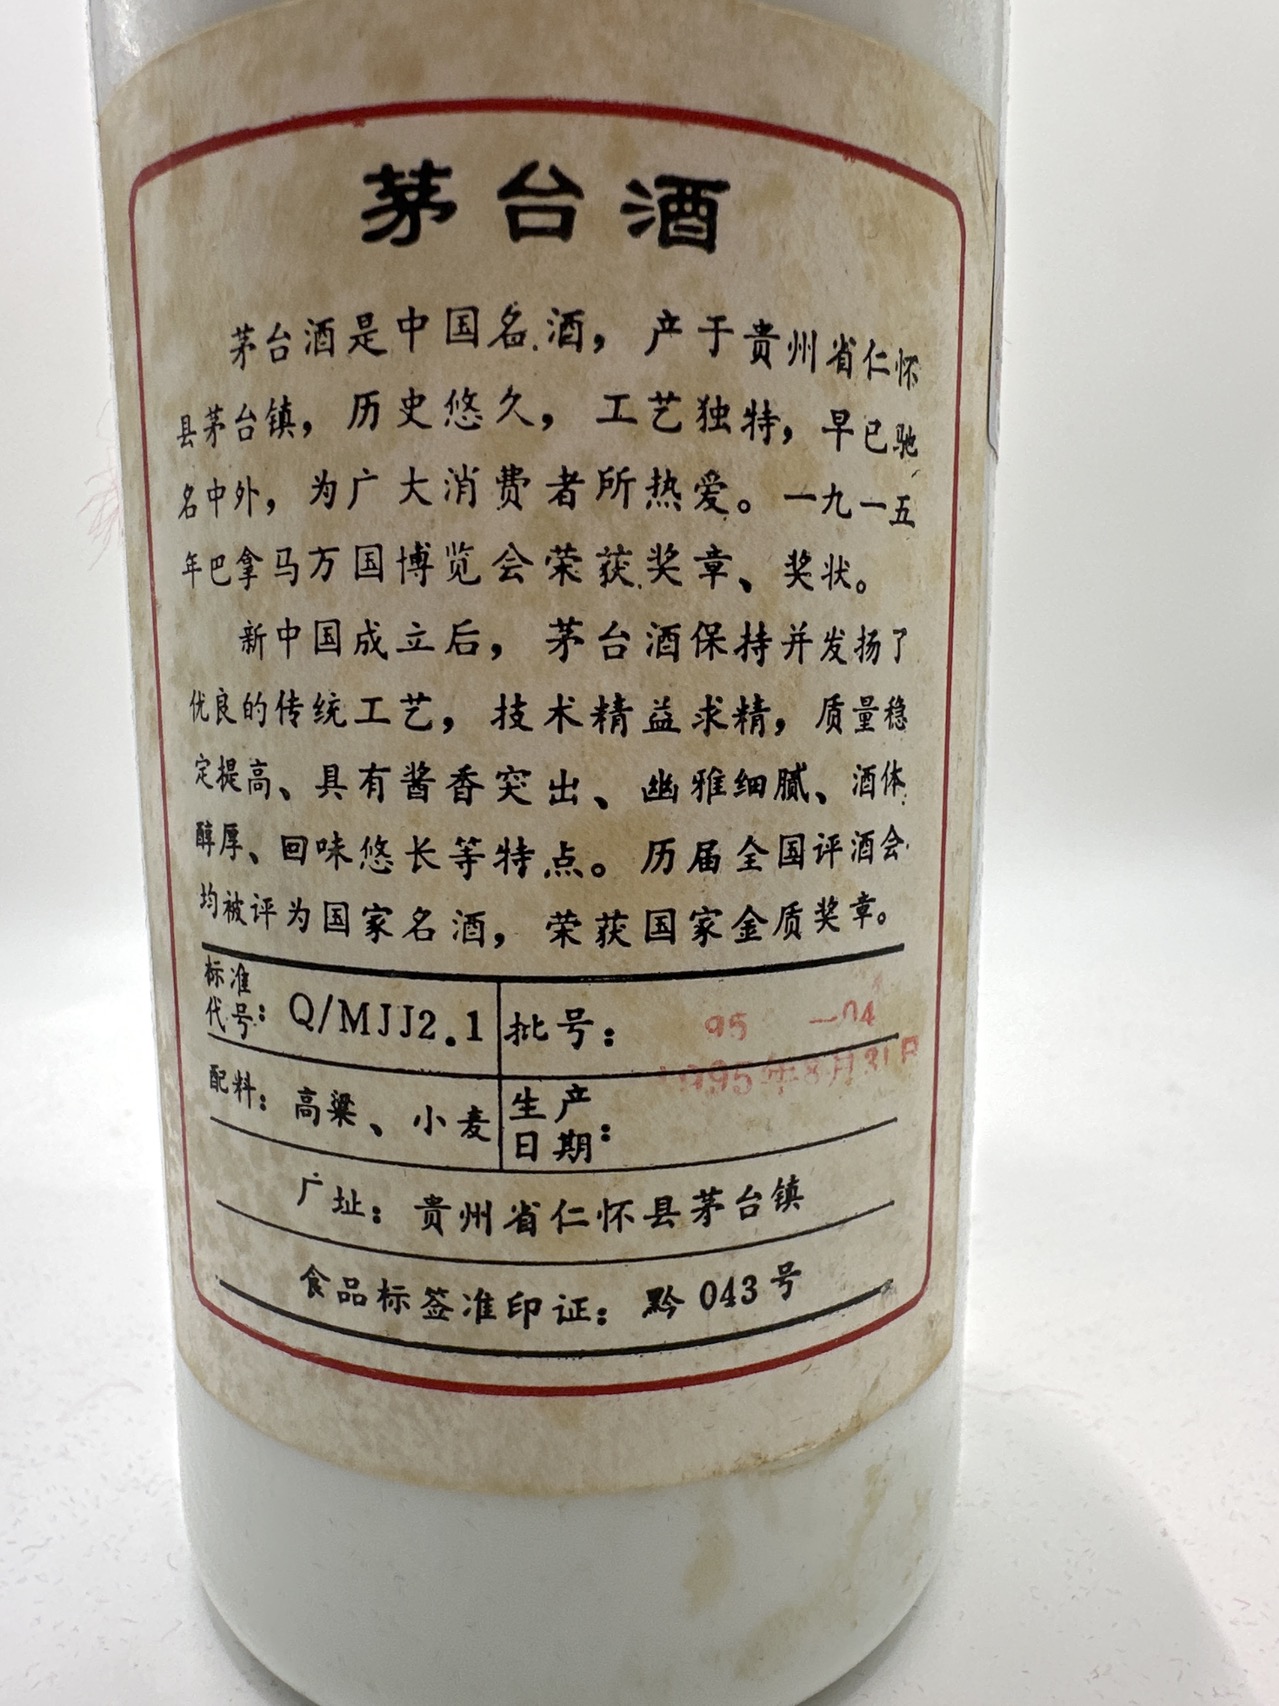 茅台酒
茅台酒是中国名酒，产于贵州省仁怀
县茅台镇，历史悠久，工艺独特，早已驰
名中外，为广大消费者所热爱。一九一五
年巴拿马万国博览会荣获奖章、奖状。
新中国成立后，茅台酒保持并发扬了
优良的传统工艺，技术精益求精，质量稳
定提高、具有酱香突出、幽雅细腻、酒体
醇厚、回味悠长等特点。历届全国评酒会
均被评为国家名酒，荣获国家金质奖章。
标准代号：Q/MJJ2.1 批号：95 —04
1995年8月31日
配料：高粱、小麦 生产日期：
厂址：贵州省仁怀县茅台镇
食品标签准印证：黔043号